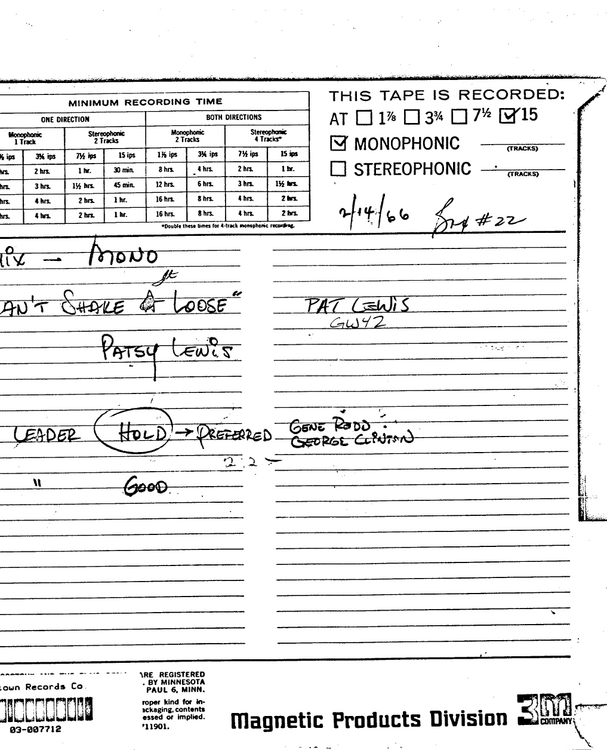 MINIMUM RECORDING TIME
ONE DIRECTION BOTH DIRECTIONS
Monophonic 1 Track Stereophonic 2 Tracks Monophonic 2 Tracks Stereophonic 4 Tracks*
ips 3¾ ips 7½ ips 15 ips 1⅞ ips 3¾ ips 7½ ips 15 ips
hrs. 2 hrs. 1 hr. 30 min. 8 hrs. 4 hrs. 2 hrs. 1 hr.
hrs. 3 hrs. 1½ hrs. 45 min. 12 hrs. 6 hrs. 3 hrs. 1½ hrs.
hrs. 4 hrs. 2 hrs. 1 hr. 16 hrs. 8 hrs. 4 hrs. 2 hrs.
hrs. 4 hrs. 2 hrs. 1 hr. 16 hrs. 8 hrs. 4 hrs. 2 hrs.
*Double these times for 4-track monophonic recording.
THIS TAPE IS RECORDED:
AT 1⅞ 3¾ 7½ 15
MONOPHONIC (TRACKS)
STEREOPHONIC (TRACKS)
2/14/66 #22
ix → MONO
AN'T SHAKE it LOOSE"
PAT LEWIS
GW42
PATSY LEWIS
LEADER HOLD → PREFERRED
GENE REDD
GEORGE CLINTON
" GOOD
town Records Co.
03-007712
RE REGISTERED
BY MINNESOTA
PAUL 6, MINN.
roper kind for in-
ackaging, contents
essed or implied.
11901.
Magnetic Products Division 3M COMPANY